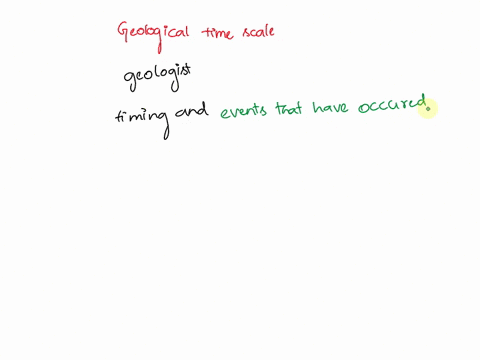 Geological time scale
geologist
timing and events that have occured.